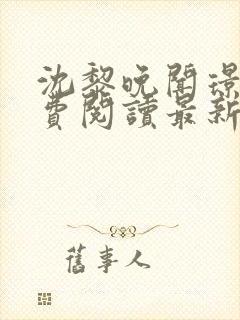 沈黎晚聞璟
費閱讀最新
舊事人